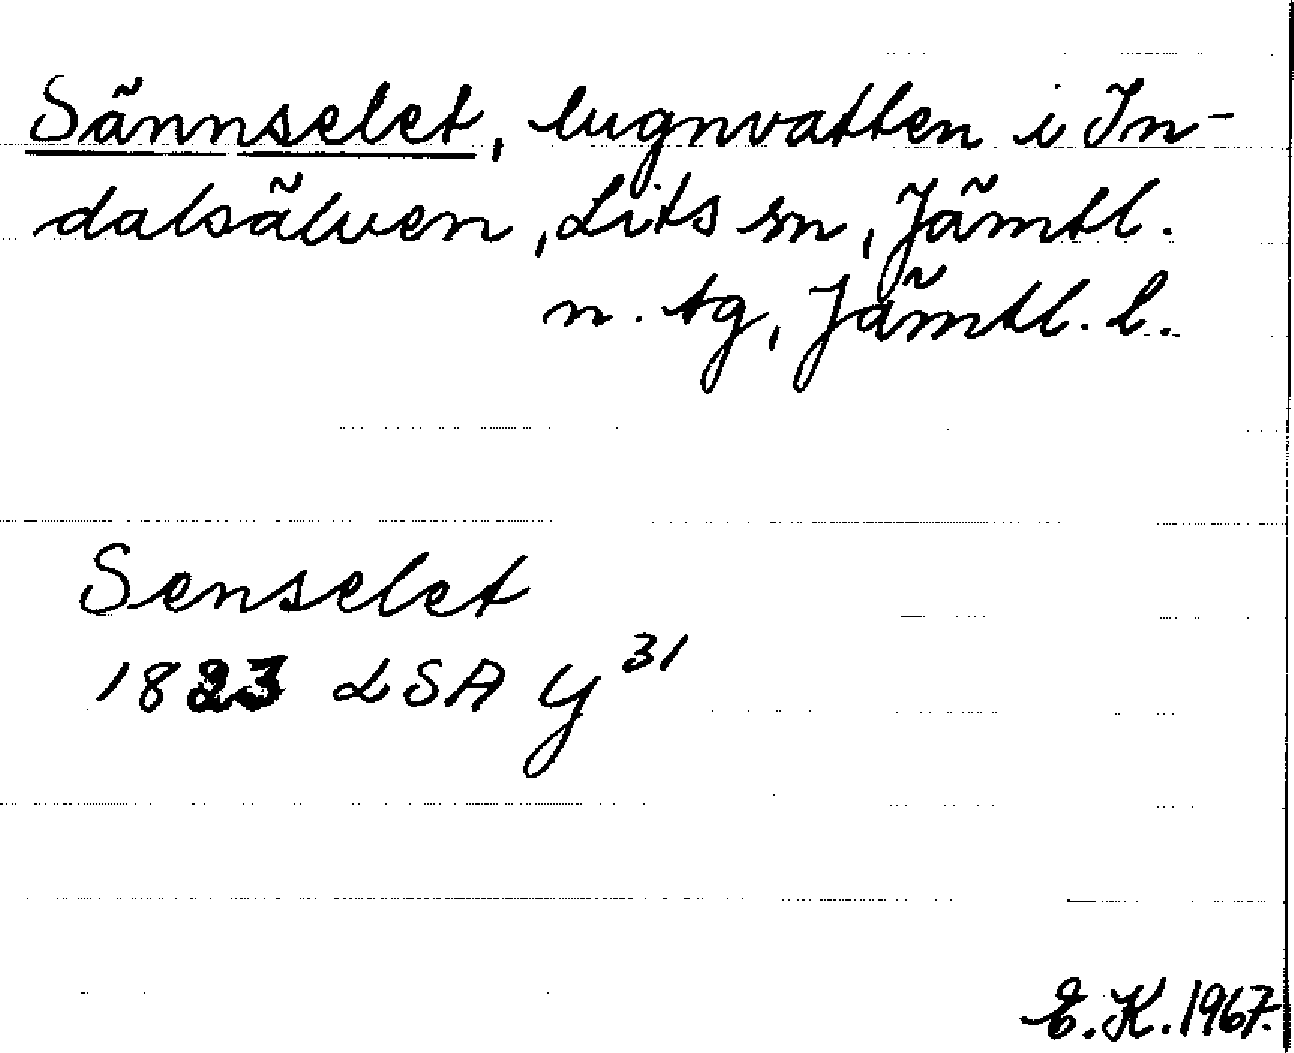 Sännselet, lugnvatten i In-
dalsälven, Lits sn, Jämtl.
n. tg, Jämtl. l.
Senselet
1823 LSA Y³¹
E.K. 1967.